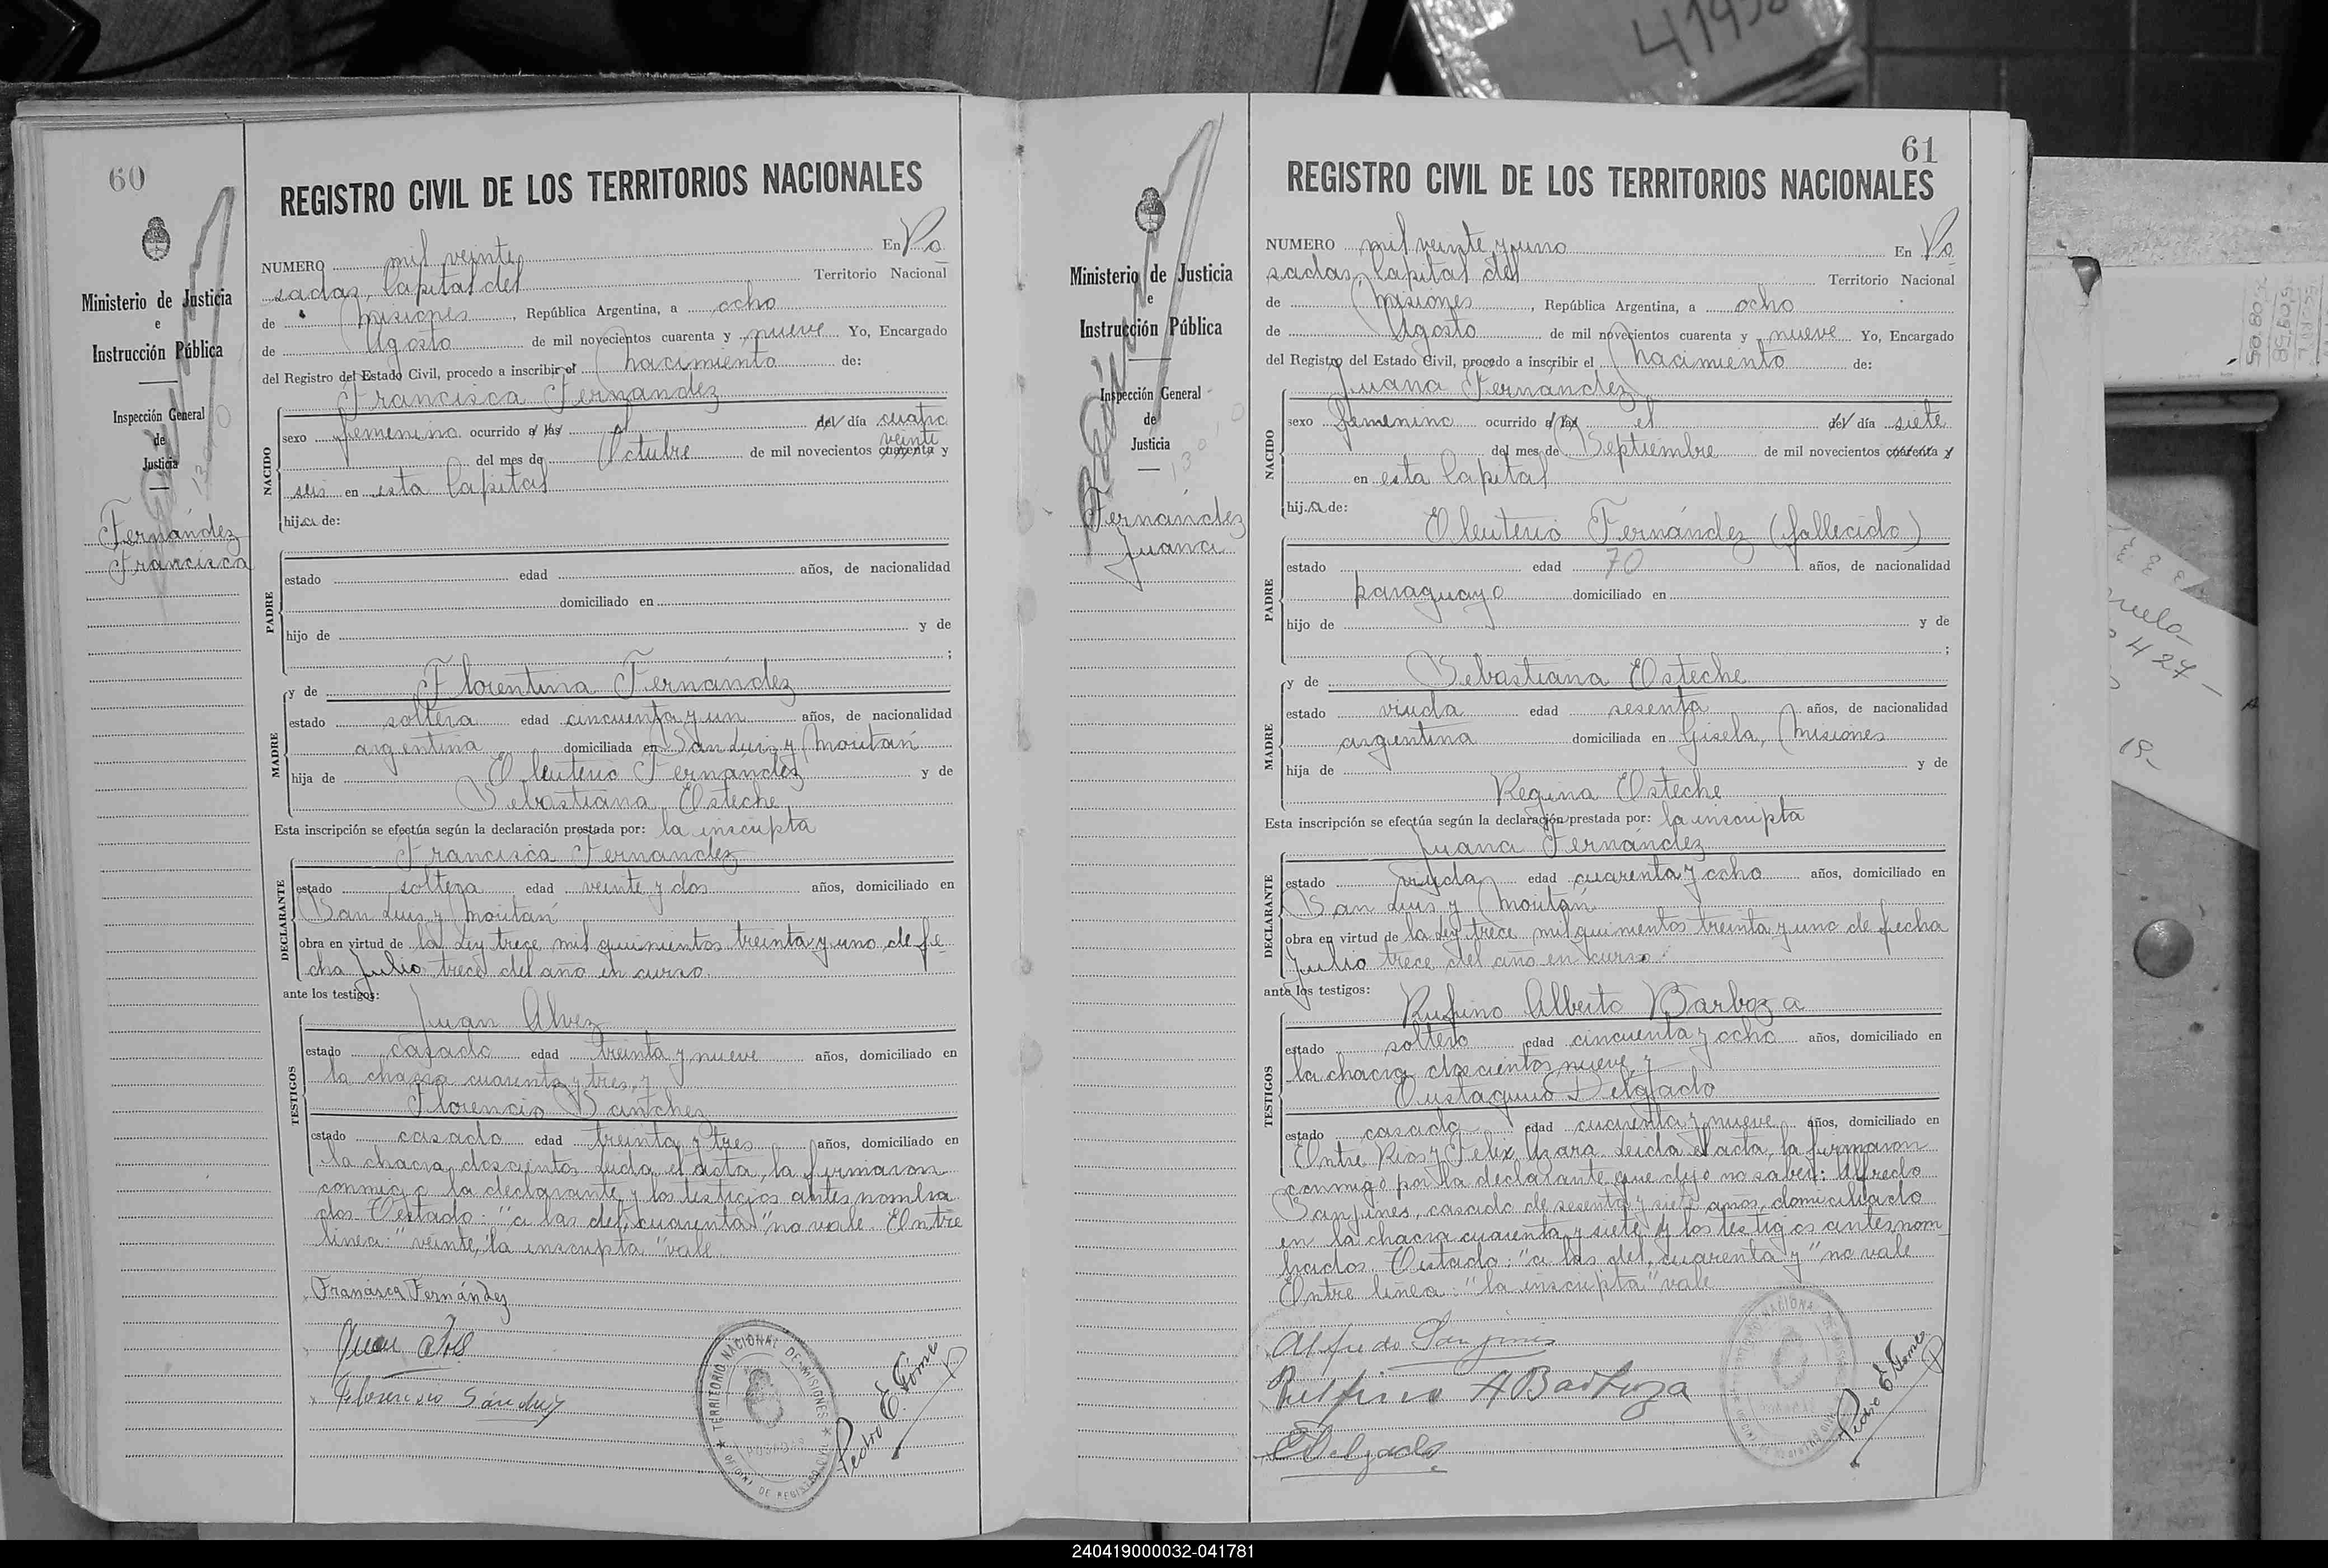 41936
60
Ministerio de Justicia
e
Instrucción Pública
Inspección General
de
Justicia
Fernández
Francisca
REGISTRO CIVIL DE LOS TERRITORIOS NACIONALES
NUMERO mil veinte En Po
sadas, Capital del Territorio Nacional
de Misiones, República Argentina, a ocho
de Agosto de mil novecientos cuarenta y nueve Yo, Encargado
del Registro del Estado Civil, procedo a inscribir el nacimiento de:
Francisca Fernandez
NACIDO
sexo femenino ocurrido a las el del día cuatro
veinte
del mes de Octubre de mil novecientos cuarenta y
seis en esta Capital
hija de:
PADRE
estado edad años, de nacionalidad
domiciliado en
hijo de y de
;
MADRE
y de Florentina Fernández
estado soltera edad cincuenta y un años, de nacionalidad
argentina domiciliada en San Luis y Moritán
hija de Eleuterio Fernández y de
Sebastiana Esteche
Esta inscripción se efectúa según la declaración prestada por: la inscripta
DECLARANTE
Francisca Fernandez
estado soltera edad veinte y dos años, domiciliado en
San Luis y Moritán
obra en virtud de la Ley trece mil quinientos treinta y uno de fe
cha Julio trece del año en curso.
ante los testigos:
TESTIGOS
Juan Alvez
estado casado edad treinta y nueve años, domiciliado en
la chacra cuarenta y tres, y
Florencio Sanchez
estado casado edad treinta y tres años, domiciliado en
la chacra doscientos Leída el acta, la firmaron
conmigo la declarante y los testigos antes nombra
dos. Testado: "a las del, cuarenta" no vale. Entre
línea: "veinte, la inscripta" vale
Francisca Fernández
Juan
Florencio Sánchez
TERRITORIO NACIONAL DE MISIONES
POSADAS
OFICINA DE REGISTRO CIVIL
Pedro E. Gómez
61
Ministerio de Justicia
e
Instrucción Pública
Inspección General
de
Justicia
Fernández
Juana
REGISTRO CIVIL DE LOS TERRITORIOS NACIONALES
NUMERO mil veinte y uno En Po
sadas, Capital del Territorio Nacional
de Misiones, República Argentina, a ocho
de Agosto de mil novecientos cuarenta y nueve Yo, Encargado
del Registro del Estado Civil, procedo a inscribir el nacimiento de:
Juana Fernandez
NACIDO
sexo femenino ocurrido a las el del día siete
del mes de Septiembre de mil novecientos cuarenta y
en esta Capital
hija de:
PADRE
Eleuterio Fernández (fallecido)
estado edad 70 años, de nacionalidad
paraguayo domiciliado en
hijo de y de
;
MADRE
y de Sebastiana Esteche
estado viuda edad sesenta años, de nacionalidad
argentina domiciliada en Gisela, Misiones
hija de y de
Regina Esteche
Esta inscripción se efectúa según la declaración prestada por: la inscripta
DECLARANTE
Juana Fernandez
estado viuda edad cuarenta y ocho años, domiciliado en
San Luis y Moritán
obra en virtud de la Ley trece mil quinientos treinta y uno de fecha
Julio trece del año en curso.
ante los testigos:
TESTIGOS
Rufino Alberto Barboza
estado soltero edad cincuenta y ocho años, domiciliado en
la chacra doscientos nueve, y
Eustaquio Delgado
estado casado edad cuarenta y nueve años, domiciliado en
Entre Rios y Felix Azara. Leída el acta, la firmaron
conmigo por la declarante que dijo no saber: Alfredo
Sanjines, casado de sesenta y siete años, domiciliado
en la chacra cuarenta y siete y los testigos antes nom
brados. Testado: "a las del, cuarenta y" no vale
Entre línea: "la inscripta" vale
Alfredo Sanjines
Rufino A Barboza
E Delgado
Pedro E. Gómez
240419000032-041781